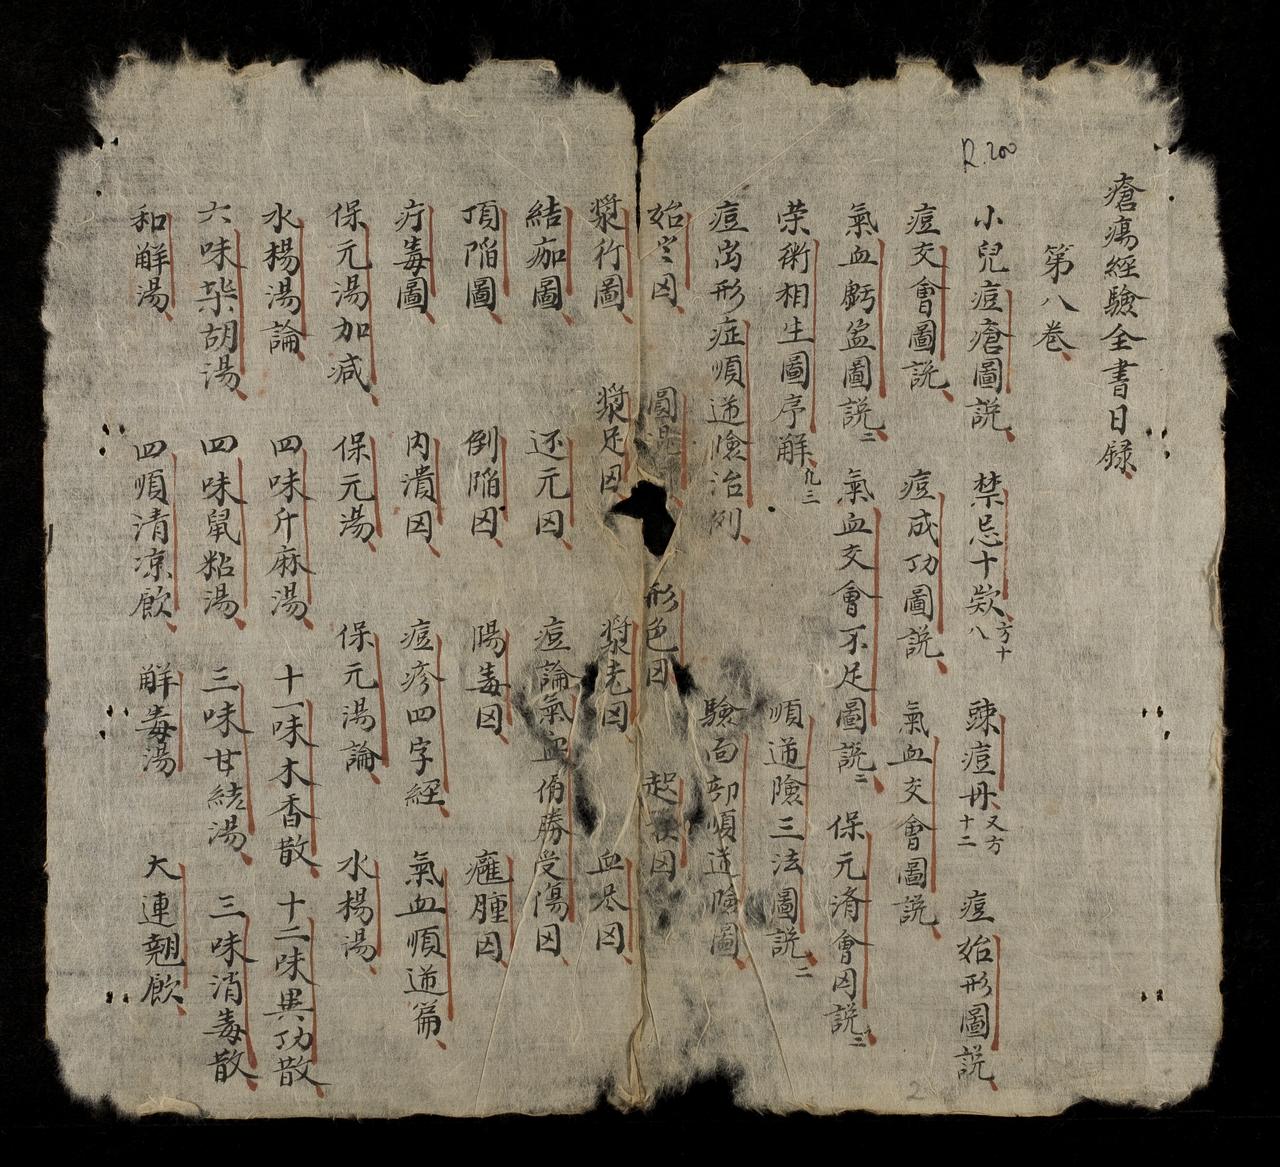 R.200
瘡瘍經驗全書目録
第八卷
小兒痘瘡圖説 禁忌十欵 方十八 踈痘丹 又方十二 痘始形圖説
痘交會圖説 痘成功圖説 氣血交會圖説
氣血虧盈圖説 二 氣血交會不足圖説 二 保元济會因説 二
荣衛相生圖序解 九三 順逆險三法圖説 二
痘出形症順逆險治例 驗面部順逆險圖
始出囙 圓混 形色囙 起 囙
漿行圖 漿足囙 漿老囙 血尽囙
結痂圖 还元囙 痘論氣血俏勝受傷囙
頂陷圖 倒陷囙 陽毒囙 癰腫囙
疔毒圖 内潰囙 痘疹四字經 氣血順逆篇
保元湯加减 保元湯 保元湯論 水楊湯
水楊湯論 四味升麻湯 十一味木香散 十二味異功散
六味柴胡湯 四味鼠粘湯 三味甘桔湯 三味消毒散
和解湯 四順清凉飲 解毒湯 大連翹飲
2